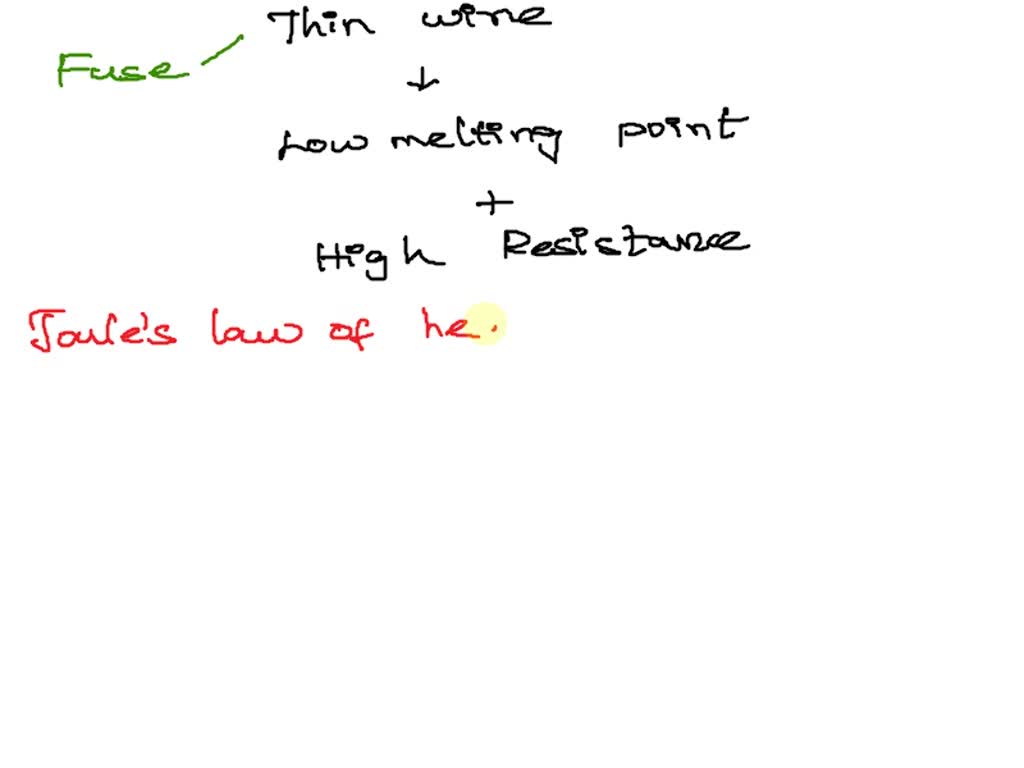 Thin wire
Fuse
↓
Low melting point
+
High Resistance
Joule's law of he